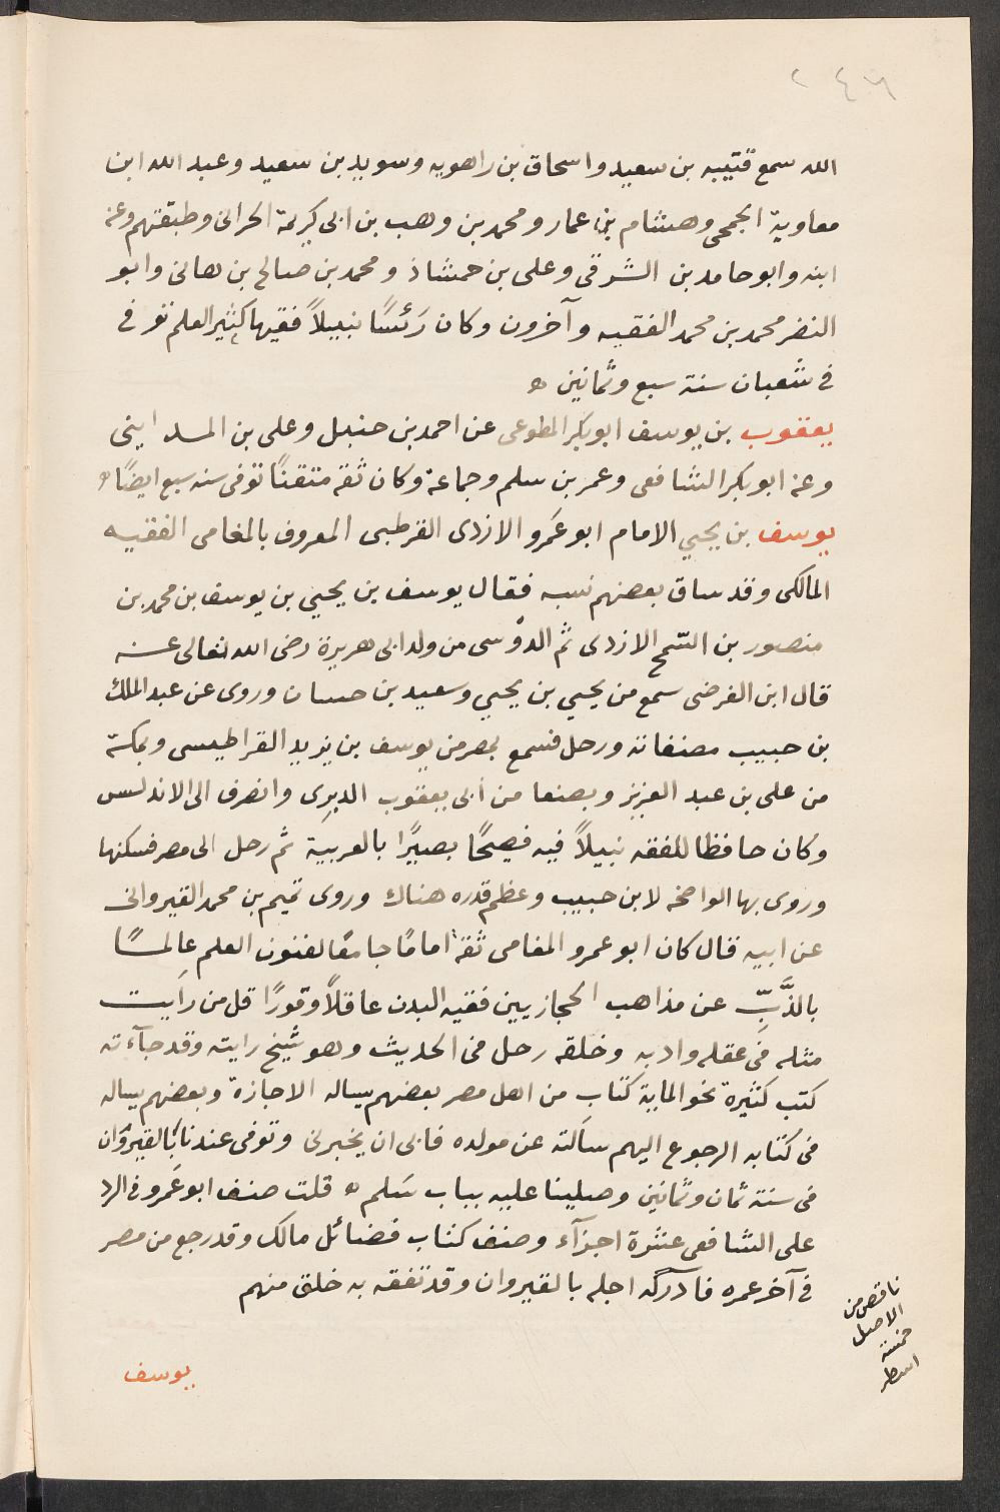 ٢٤٦
الله سمع قتيبه بن سعيد واسحاق بن راهويه وسويد بن سعيد وعبد الله ابن
معاوية الجمحى وهشام بن عمار ومحمد بن وهب بن ابى كريمة الحرانى وطبقتهم وعنه
ابنه وابو حامد بن الشرقى وعلى بن حمشاذ ومحمد بن صالح بن هانى وابو
النضر محمد بن محمد الفقيه وآخرون وكان رَئسًا نبيلاً فقيها كثير العلم توفى
فى شعبان سنة سبع وثمانين ه
يعقوب بن يوسف ابو بكر المطوعى عن احمد بن حنبل وعلى بن المدايني
وعنه ابو بكر الشافعى وعمر بن سلم وجماعة وكان ثقة متقنًا توفى سنه سبع ايضًا ه
يوسف بن يحيي الامام ابو عَمرو الازدى القرطبى المعروف بالمغامى الفقيه
المالكى وقد ساق بعضهم نسبه فقال يوسف بن يحيى بن يوسف بن محمد بن
منصور بن السّمح الازدى ثم الدوْسى من ولد ابى هريرة رضى الله تعالى عنه
قال ابن الفرضى سمع من يحيي بن يحيي وسعيد بن حسان وروى عن عبد الملك
بن حبيب مصنفاته ورحل فسمع بمصر من يوسف بن يزيد القراطيسى وبمكة
من على بن عبد العزيز وبصنعا من أبى يعقوب الدبرِى وانصرف الى الاندلس
وكان حافظا للفقه نبيلاً فيه فصيحًا بصيرًا بالعربية ثم رحل الى مصر فسكنها
وروى بها الواضحه لابن حبيب وعظم قدره هناك وروى تميم بن محمد القيروانى
عن ابيه قال كان ابو عمرو المغامى ثقة امامًا جامعًا لفنون العلم عالمًا
بالذَّبِّ عن مذاهب الحجازيين فقيه البدن عاقلاً وقورًا قل من رأيت
مثله فى عقله وادبه وخلقه رحل فى الحديث وهو شيخ رايته وقد جآءته
كتب كثيرة نحو الماية كتاب من اهل مصر بعضهم يساله الاجازة وبعضهم يساله
فى كتابه الرجوع اليهم سألته عن مولده فابى ان يخبرنى وتوفى عندنا بالقيروان
فى سنة ثمان وثمانين وصلينا عليه بباب سَلم ه قلت صنف ابو عَمرو فى الرد
على الشافعى عشرة اجزآء وصنف كتاب فضائل مالك وقد رجع من مصر
فى آخر عمره فادركه اجله بالقيروان وقد تفقه به خلق منهم
ناقص من
الاصل
خمسة
اسطر
يوسف